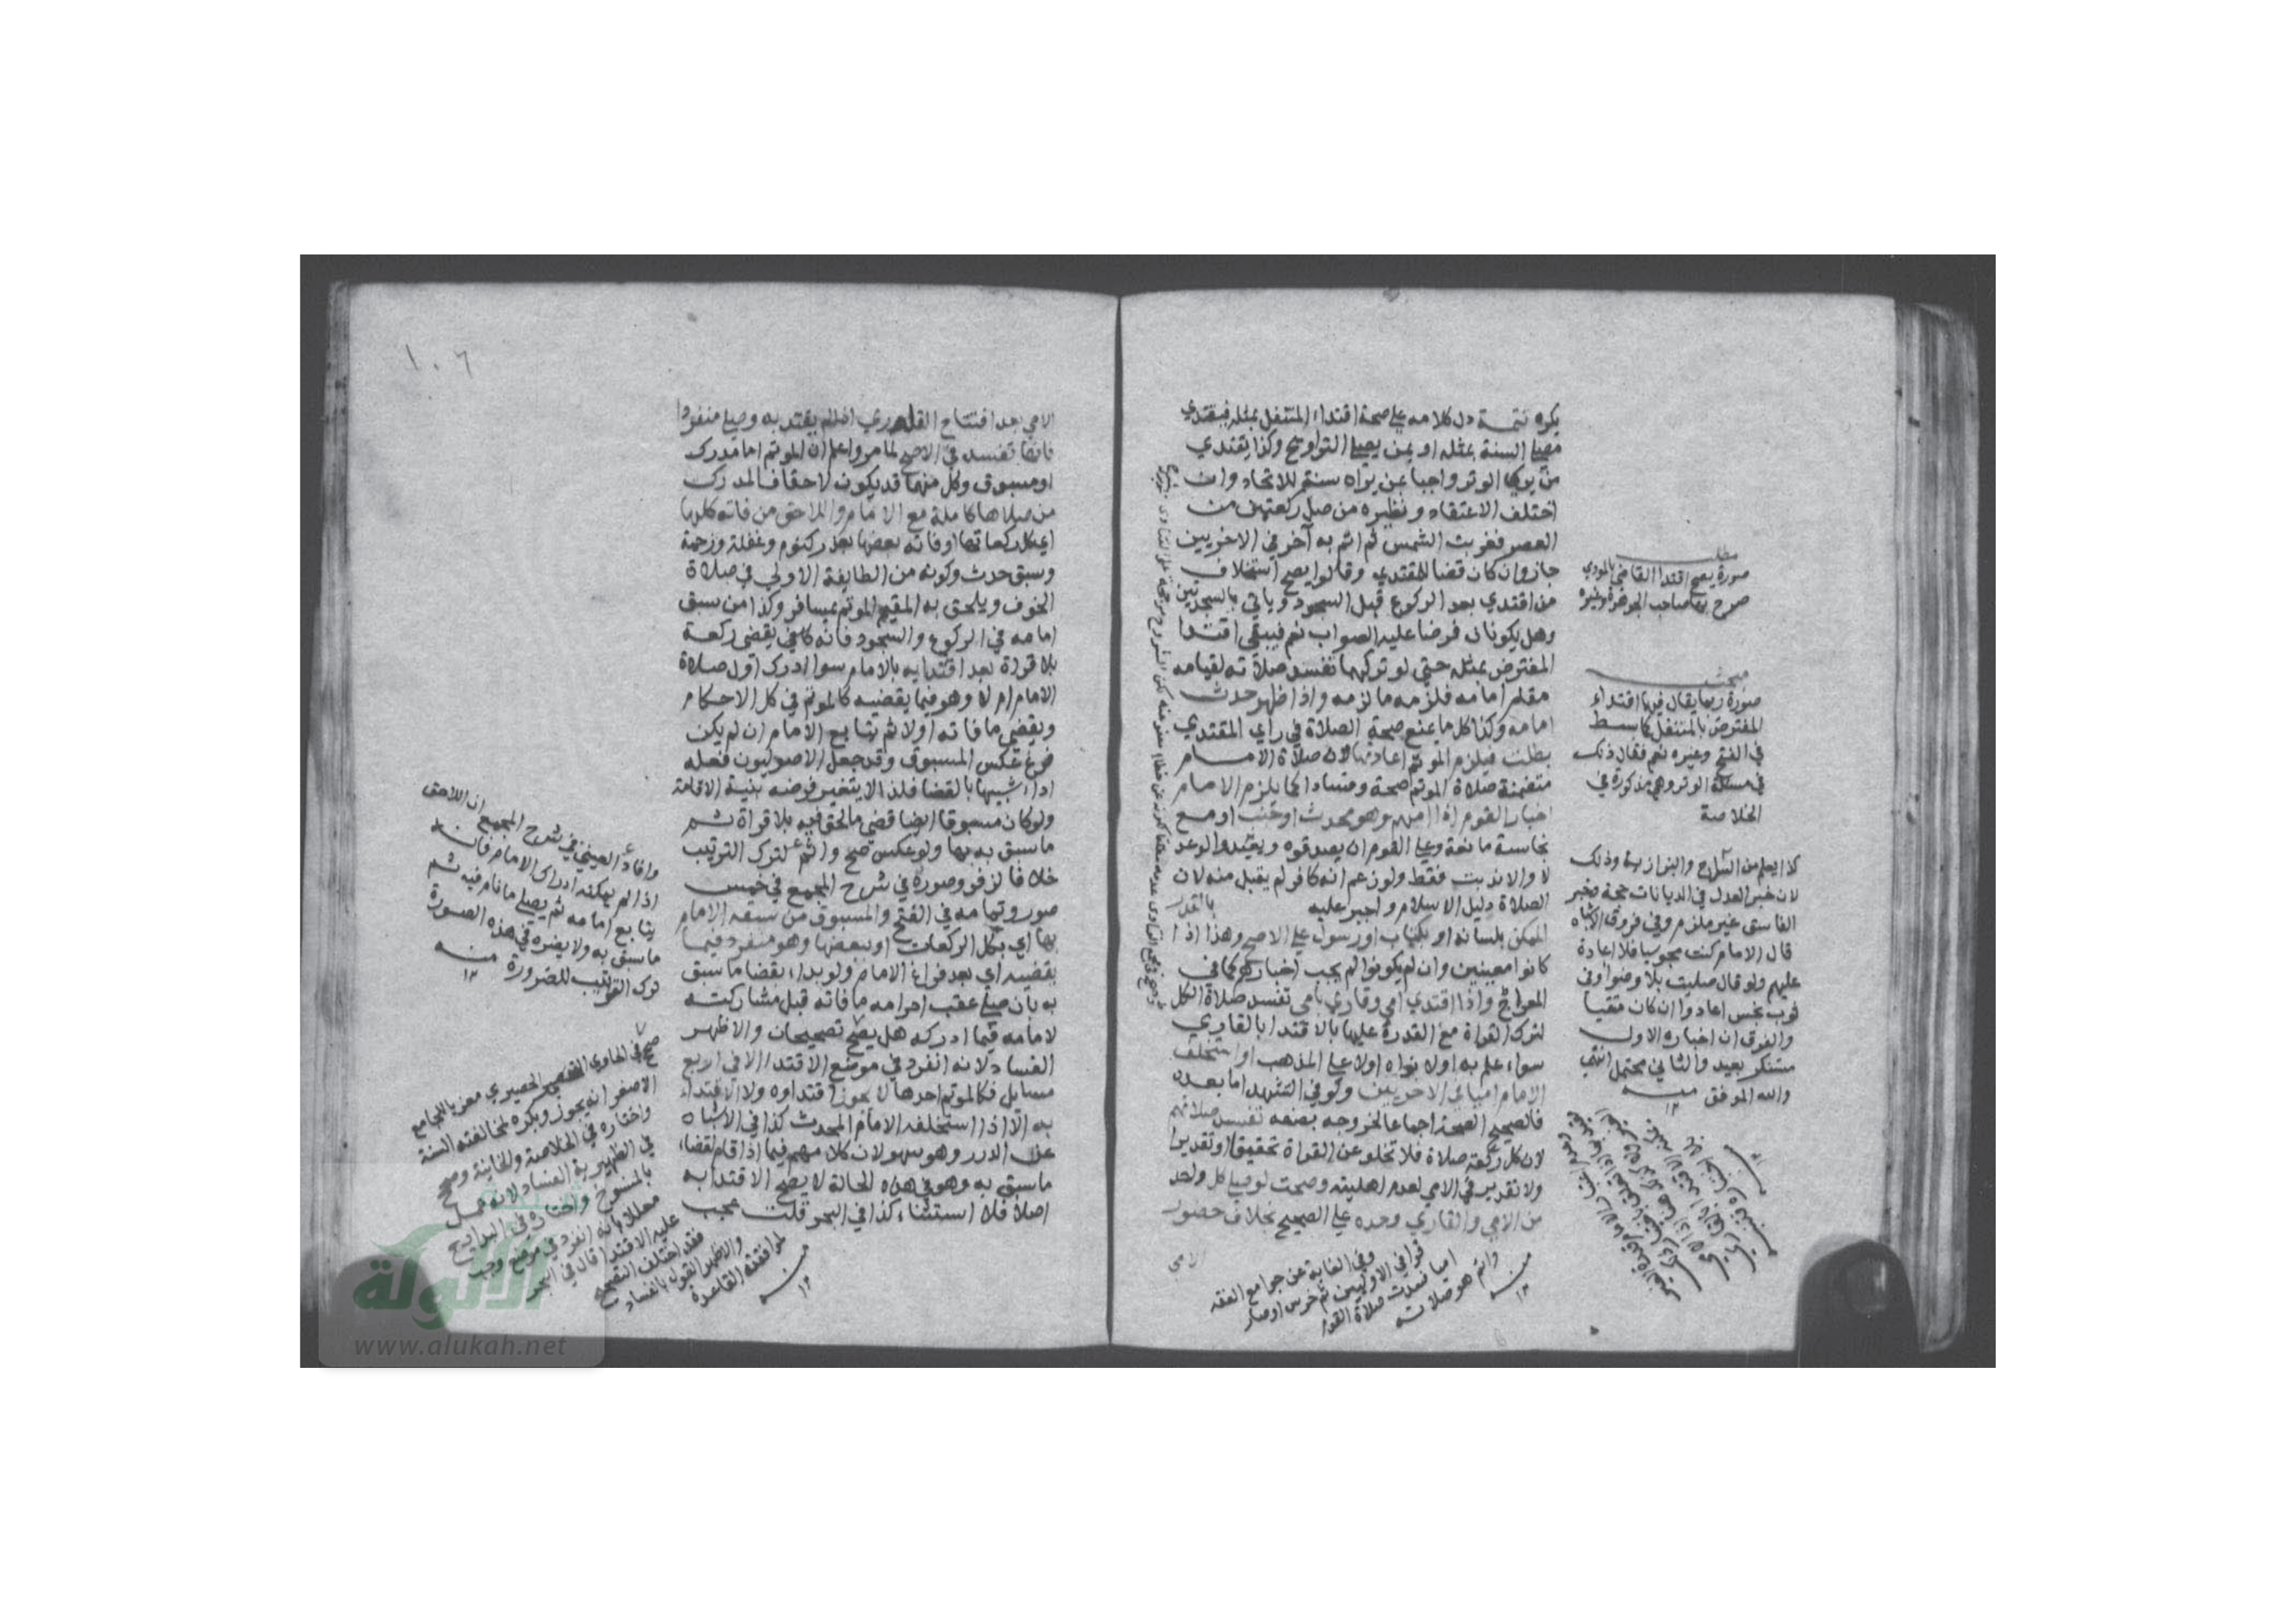 يكره تتمة دل كلامه علي صحة اقتداء المتنفل بمثله فيقتدي
مصلي السنة بمثله او بمن يصلي التراويح وكذا يقتدي
من يري الوتر واجبا بمن يراه سنة للاتحاد وان
اختلف الاعتقاد ونظيره من صلي ركعتين من
العصر فغربت الشمس ثم ائتم به آخر في الاخريين
جاز وان كان قضا للمقتدي وقالوا يصح استخلاف
من اقتدي بعد الركوع قبل السجود وياتي بالسجدتين
وهل يكونان فرضا عليه الصواب نعم فيبقي اقتدا
المفترض بمثله حتي لو تركهما تفسد صلاته لقيامه
مقام امامه فلزمه ما لزمه واذا ظهر حدث
امامه وكذا كل ما يمنع صحة الصلاة في راي المقتدي
بطلت فيلزم الموتم اعادتها لان صلاة الامام
متضمنة صلاة الموتم صحة وفسادا كما يلزم الامام
اخبار القوم اذا امهم وهو محدث او جنب او مع
نجاسة مانعة وعلي القوم ان يصدقوه
والا ندبت فقط ولو زعم انه كافر لم يقبل منه لان
الصلاة دليل الاسلام واجبر عليه بالقدر
الممكن بلسانه او بكتاب او رسول علي الاصح وهذا اذا
كانوا معينين وان لم يكونوا لم يجب اخبارهم كما في
المعراج واذا اقتدي امي وقاري بامي تفسد صلاة الكل
لترك القراة مع القدرة عليها بالاقتدا بالقاري
سواء علم به او لا نواه او لا علي المذهب او استخلف
الامام اميا في الاخريين ولو في التشهد اما بعده
فالصحيح الصحة اجماعا لخروجه بصنعه تفسد صلاتهم
لان كل ركعة صلاة فلا تخلو عن القراة تحقيقا او تقديرا
ولا تقدير في الامي لعدم اهليته وصحت لو صلي كل واحد
من الامي والقاري وحده علي الصحيح بخلاف حضور
الامي
مطلب
صورة يصح اقتدا القاضي بالمودي
صرح بها صاحب الجوهرة وغيره
مبحث
صورة ربما يقال فيها اقتداء
المفترض بالمتنفل كما بسط
في الفتح وغيره نعم فقال ذلك
في مسئلة الوتر وهي مذكورة في
الخلاصة
كذا يعلم من السراج والبزازية وذلك
لان خبر العدل في الديانات حجة وخبر
الفاسق غير ملزم وفي فروق الاشباه
قال الامام كنت مجوسيا فلا اعادة
عليهم ولو قال صليت بلا وضوا وفي
ثوب نجس اعادوا ان كان متقيا
والفرق ان اخباره الاول
مستنكر بعيد والثاني محتمل انتهي
والله الموفق منه ١٢
وفي الغاية عن جوامع الفقه
قرا في الاوليين ثم خرس او صار
اميا فسدت صلاة القوم
واتم هو صلاته
منه ١٢
١٠٦
الامي بعد افتتاح القاري اذا لم يقتد به وصلي منفردا
فانها تفسد في الاصح لما مر واعلم ان الموتم اما مدرك
او مسبوق وكل منهما قد يكون لاحقا فالمدرك
من صلاها كاملة مع الامام واللاحق من فاته كلها
اي كل ركعاتها او فاته بعضها بعذر كنوم وغفلة وزحمة
وسبق حدث وكونه من الطايفة الاولي في صلاة
الخوف ويلحق به المقيم الموتم بمسافر وكذا من سبق
امامه في الركوع والسجود فانه يقضي ركعة
بلا قراة بعد اقتدايه بالامام سوا ادرك اول صلاة
الامام ام لا وهو فيما يقضيه كالموتم في كل الاحكام
ويقضي ما فاته اولا ثم يتابع الامام ان لم يكن
فرغ عكس المسبوق وقد جعل الاصوليون فعله
اداء شبيها بالقضا فلذا لا يتغير فرضه بنية الاقامة
ولو كان مسبوقا ايضا قضي ما لحق فيه بلا قراة ثم
ما سبق به بها ولو عكس صح واثم لترك الترتيب
خلافا لزفر وصوره في شرح المجمع في خمس
صور وتمامه في الفتح والمسبوق من سبقه الامام
بها اي بكل الركعات او ببعضها وهو منفرد فيما
يقضيه اي بعد فراغ الامام ولو بدا بقضا ما سبق
به بان صلي عقب احرامه ما فاته قبل مشاركته
لامامه فيما ادركه هل يصح تصحيحان والاظهر
الفساد لانه انفرد في موضع الاقتدا الا في اربع
مسايل فكالموتم احدها لا يجوز اقتداوه ولا الاقتداء
به الا اذا استخلفه الامام المحدث كذا في الاشباه
عن الدرر وهو سهو لان كلامهم فيما اذا قام لقضاء
ما سبق به وهو في هذه الحالة لا يصح الاقتدا به
اصلا فلا استثناء كذا في البحر قلت يجب
وافاد العيني في شرح المجمع ان اللاحق
اذا لم يمكنه ادراك الامام فانه
يتابع امامه ثم يصلي ما نام فيه ثم
ما سبق به ولا يضره في هذه الصورة
ترك الترتيب للضرورة منه ١٢
صح في الحاوي الحصيري معزيا للجامع
الاصغر انه يجوز ويكره لمخالفته السنة
واختاره في الخلاصة والخانية وصحح
في الظهيرية الفساد لانه عمل
بالمنسوخ واختاره في البدايع
معللا بانه انفرد في موضع وجب
عليه الاقتدا قال في البحر
فقد اختلف التصحيح
والاظهر القول بالفساد
لموافقته القاعدة
منه ١٢
الألوكة
www.alukah.net